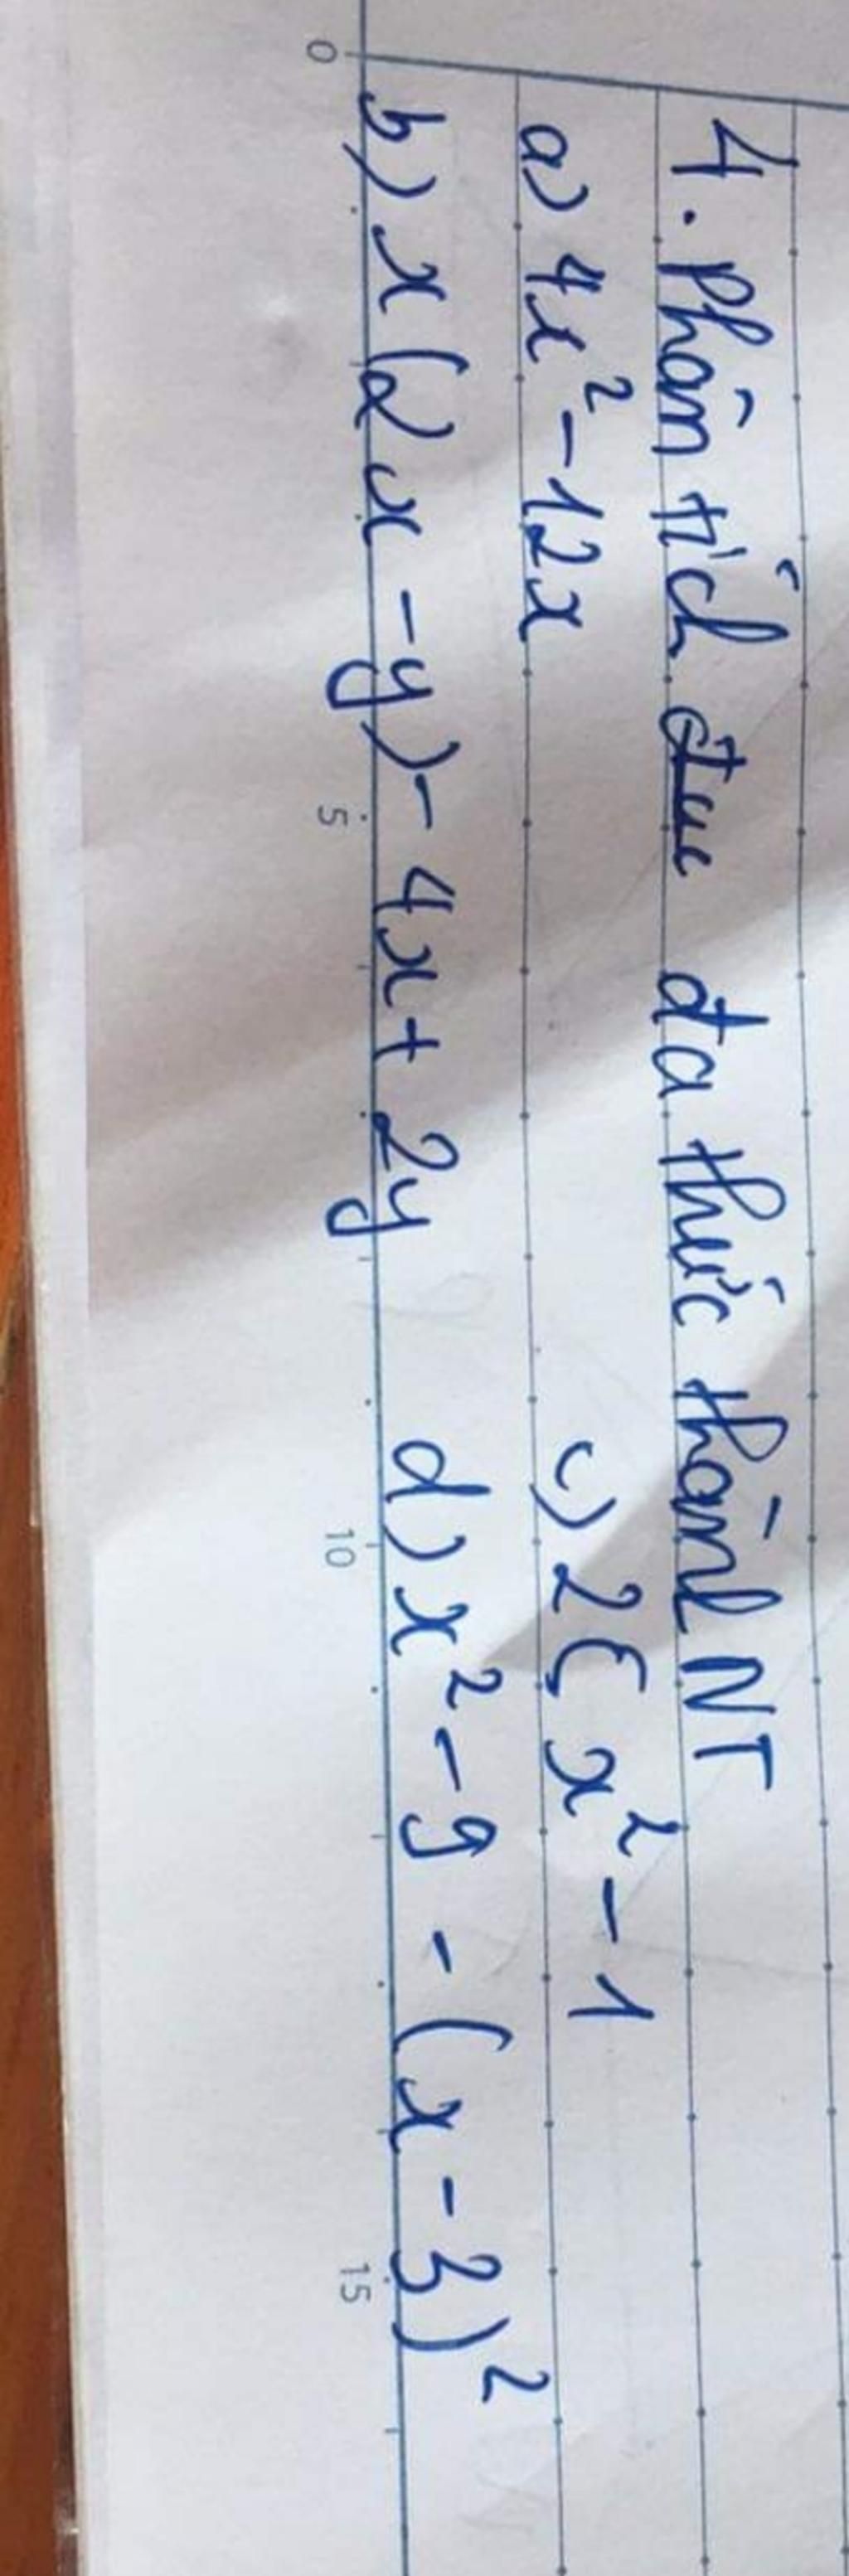 4. Phân tích đa thức thành NT
a) 4x² - 12x
c) 25x² - 1
b) x(2x - y) - 4x + 2y
d) x² - 9 - (x - 3)²
0 5 10 15